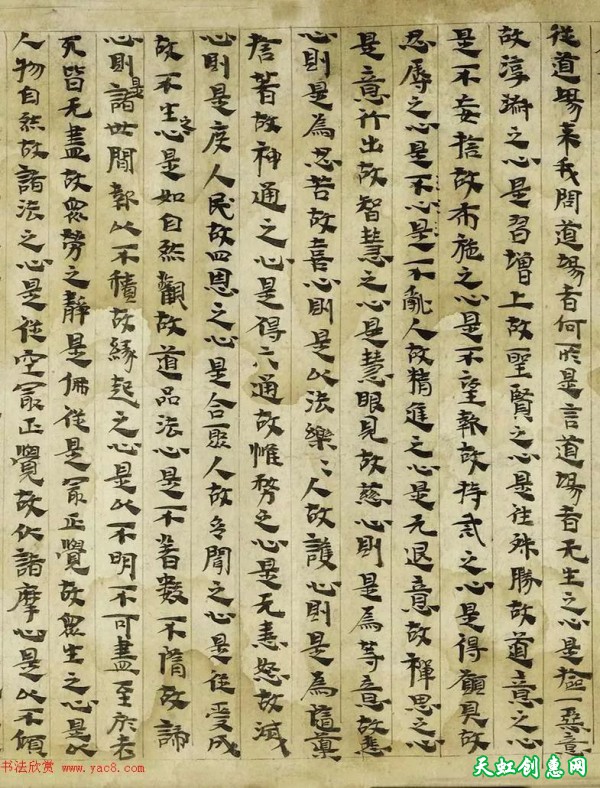 從道場來我問道場者何所是言道場者无生之心是撿一惡意
故淳淑之心是習增上故聖賢之心是往殊勝故道意之心
是不妄捨故布施之心是不望報故持戒之心是得願具故
忍辱之心是不心是一不亂人故精進之心是无退意故禪思之心
是意行出故智慧之心是慧眼見故慈心則是為等意故悲
心則是為忍苦故喜心則是以法樂〻人故護心則是為隨導
捨著故神通之心是得六通故惟務之心是无恚怒故滅
心則是度人民故四恩之心是合聚人故多聞之心是從受成
故不生之心是如自然觀故道品法心是不著數不墮故諦
心則是諸世間報以不積故緣起之心是以不明不可盡至於老
死皆无盡故眾勞之靜是佛從是最正覺故眾生之心是以
人物自然故諸法之心是從空最正覺故伏諸摩心是以不傾
书法欣赏 www.yac8.com
天虹创惠网